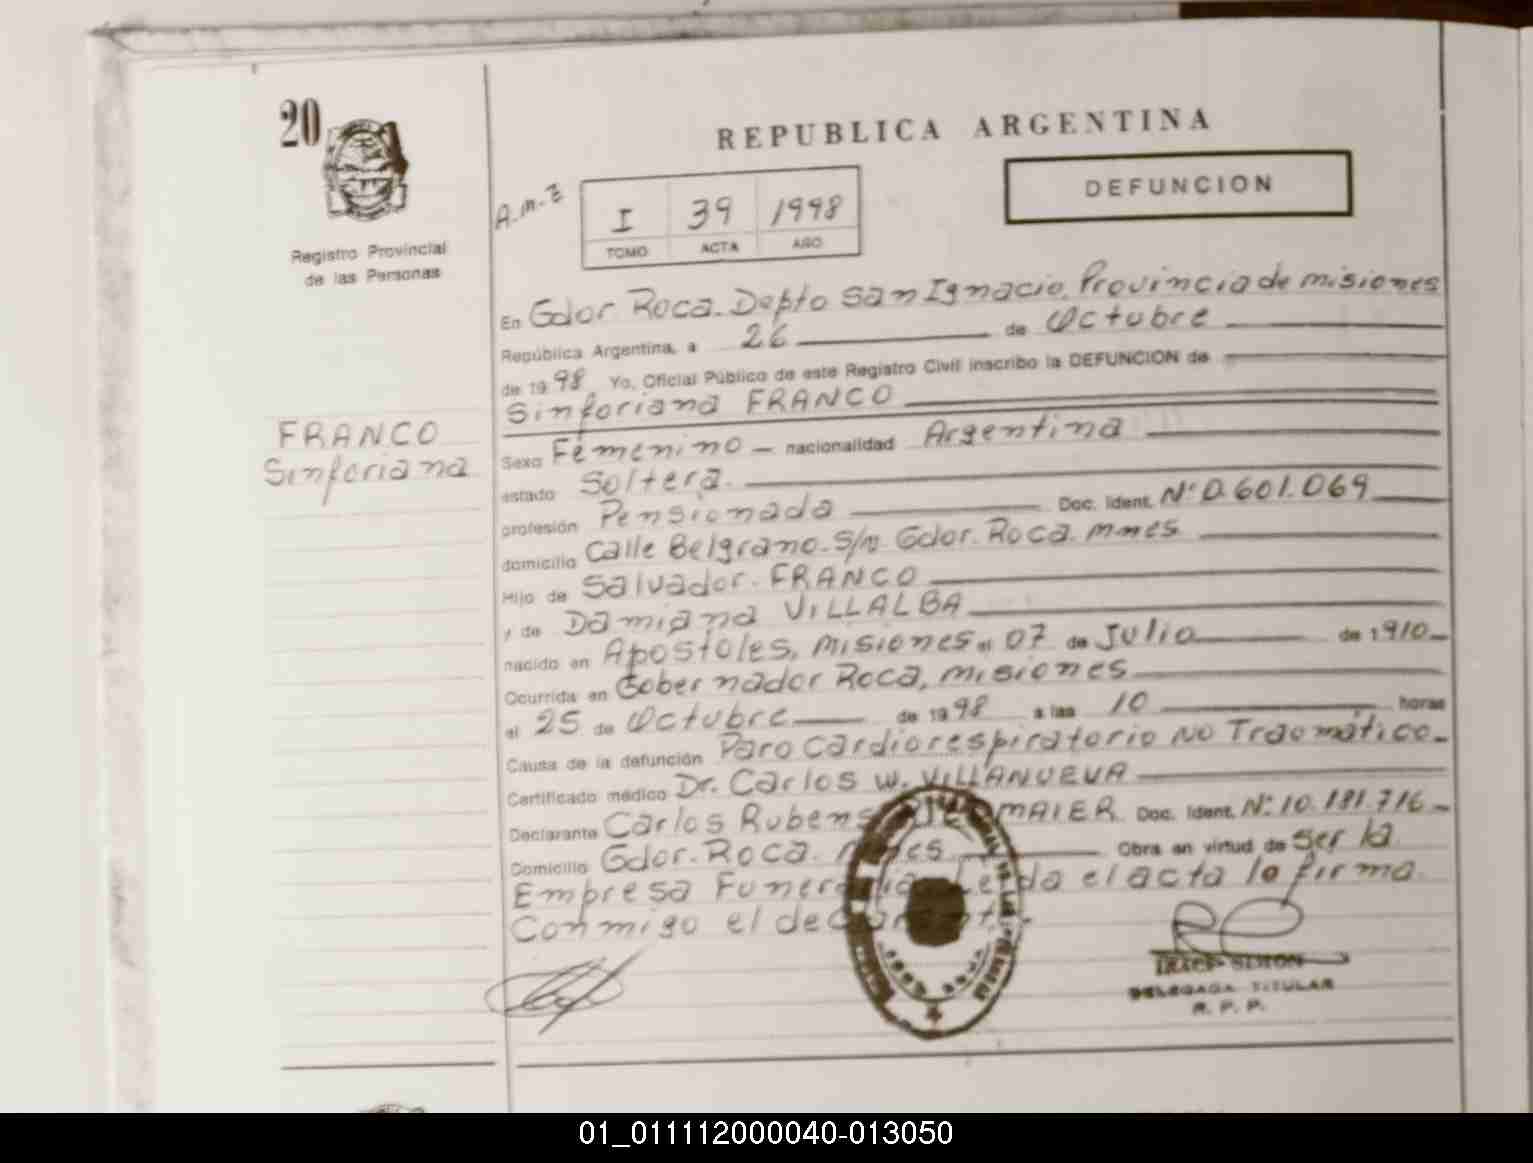 20
REPUBLICA ARGENTINA
DEFUNCION
A.M.Z
I 39 1998
TOMO ACTA AÑO
Registro Provincial
de las Personas
En Gdor Roca. Depto San Ignacio, Provincia de misiones
República Argentina, a 26 de Octubre
de 1998 Yo, Oficial Público de este Registro Civil inscribo la DEFUNCION de
Sinforiana FRANCO
FRANCO
Sinforiana
Sexo Femenino nacionalidad Argentina
estado Soltera.
profesión Pensionada Doc. Ident. Nº 0.601.069
domicilio Calle Belgrano. S/n. Gdor. Roca. mnes
Hijo de Salvador. FRANCO
y de Damiana VILLALBA
nacido en Apostoles, misiones el 07 de Julio de 1910
Ocurrida en Gobernador Roca, misiones
el 25 de Octubre de 1998 a las 10 horas
Causa de la defunción Paro Cardiorespiratorio No Traomático
Certificado médico Dr. Carlos W. VILLANUEVA
Declarante Carlos Rubens Doc. Ident. Nº 10.181.716
Domicilio Gdor. Roca. mnes Obra en virtud de ser la
Empresa Funeraria Leida el acta lo firma
Conmigo el declarante.
SIMON
DELEGADA TITULAR
R. P. P.
01_011112000040-013050